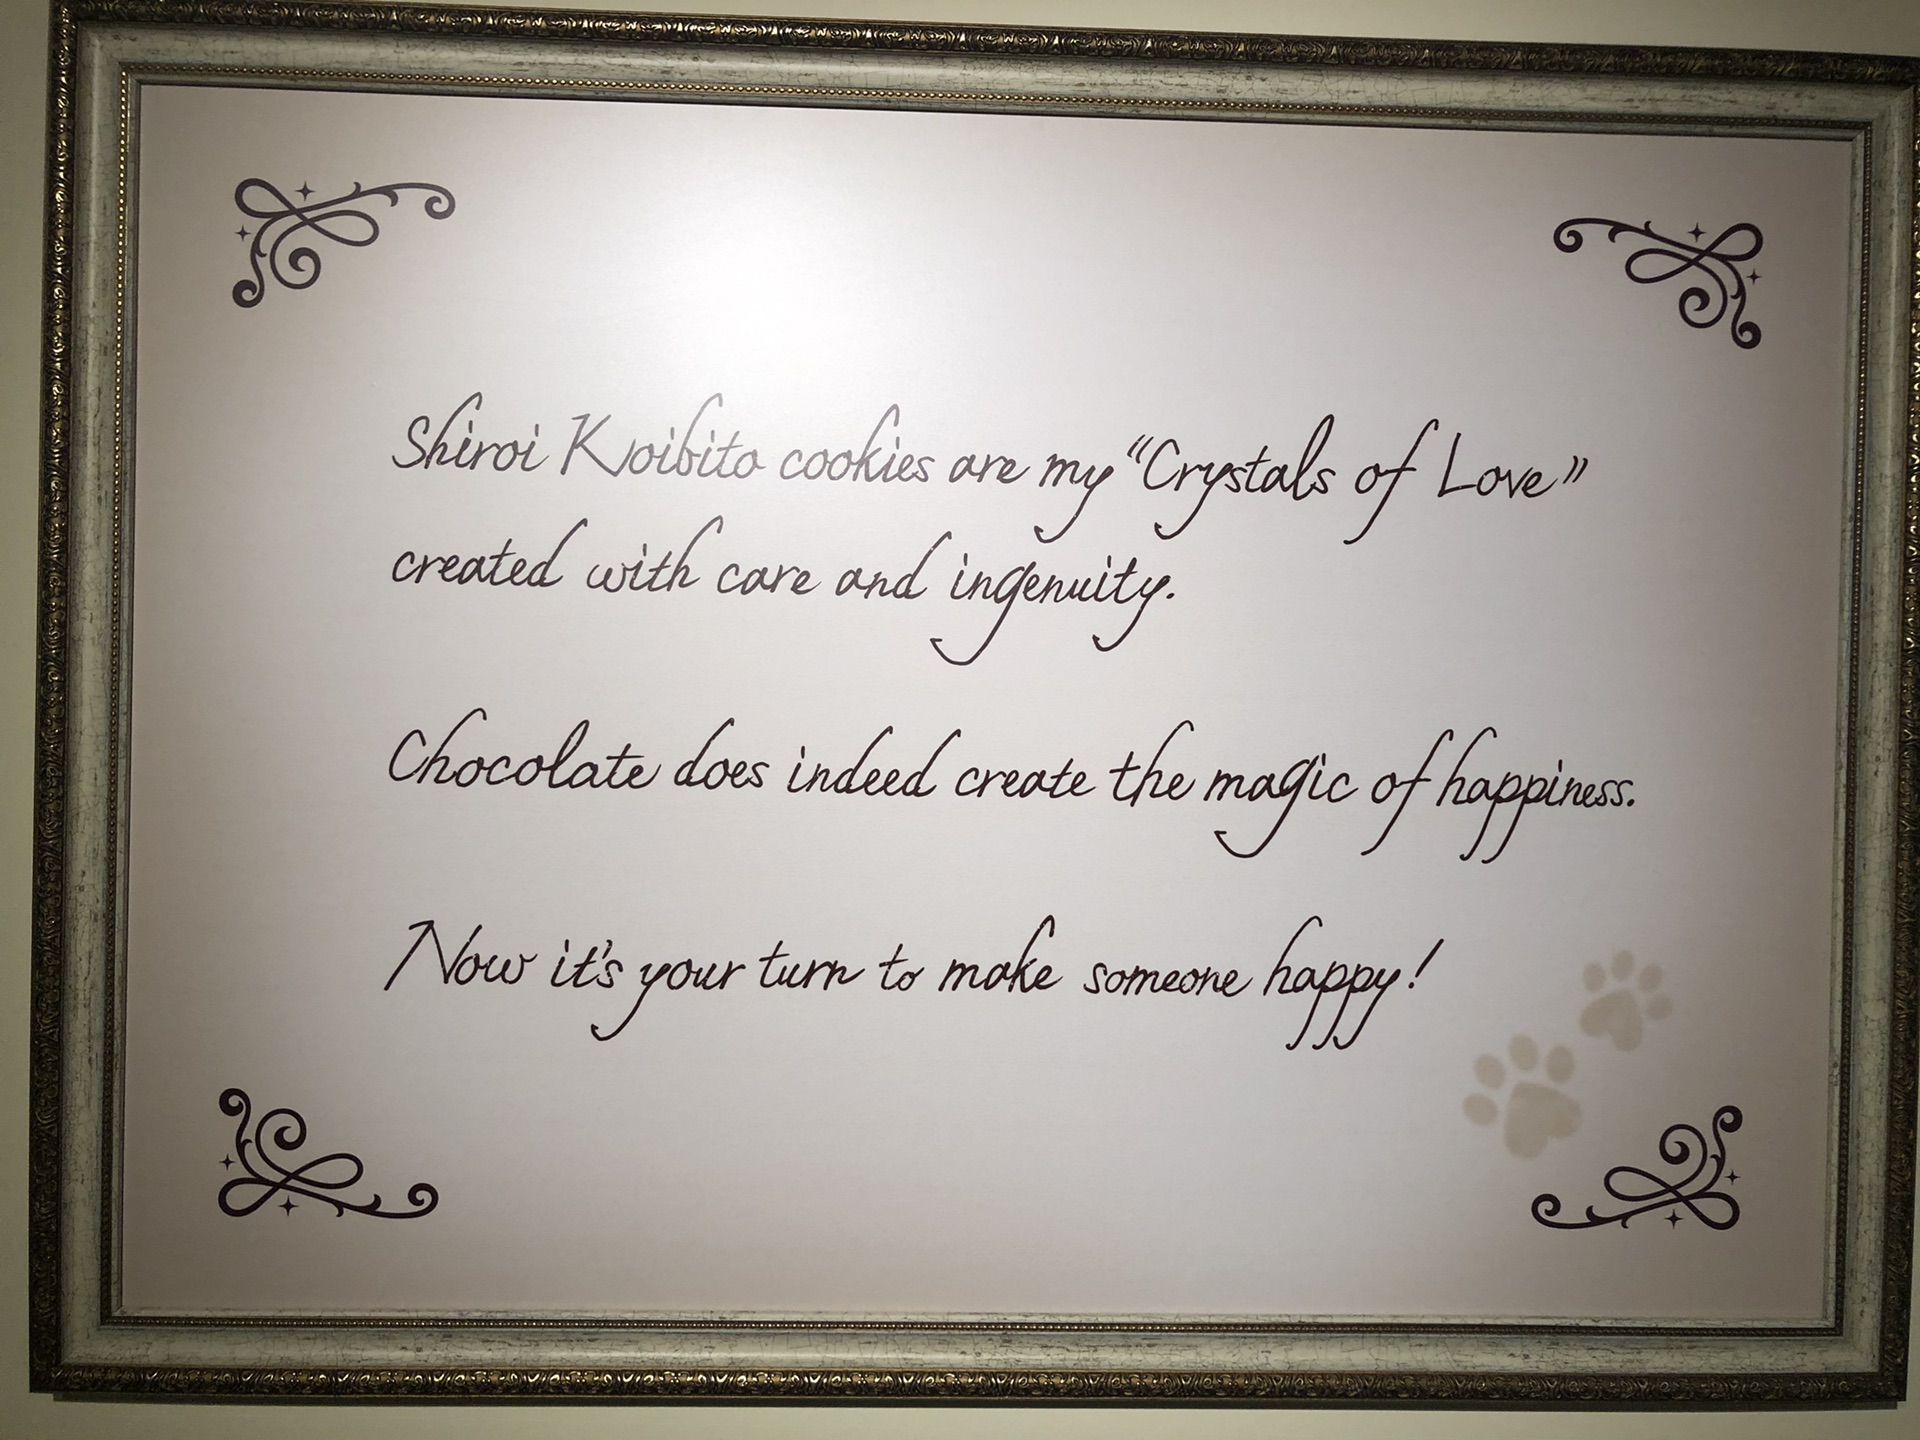 Shiroi Koibito cookies are my “Crystals of Love”
created with care and ingenuity.
Chocolate does indeed create the magic of happiness.
Now it's your turn to make someone happy!